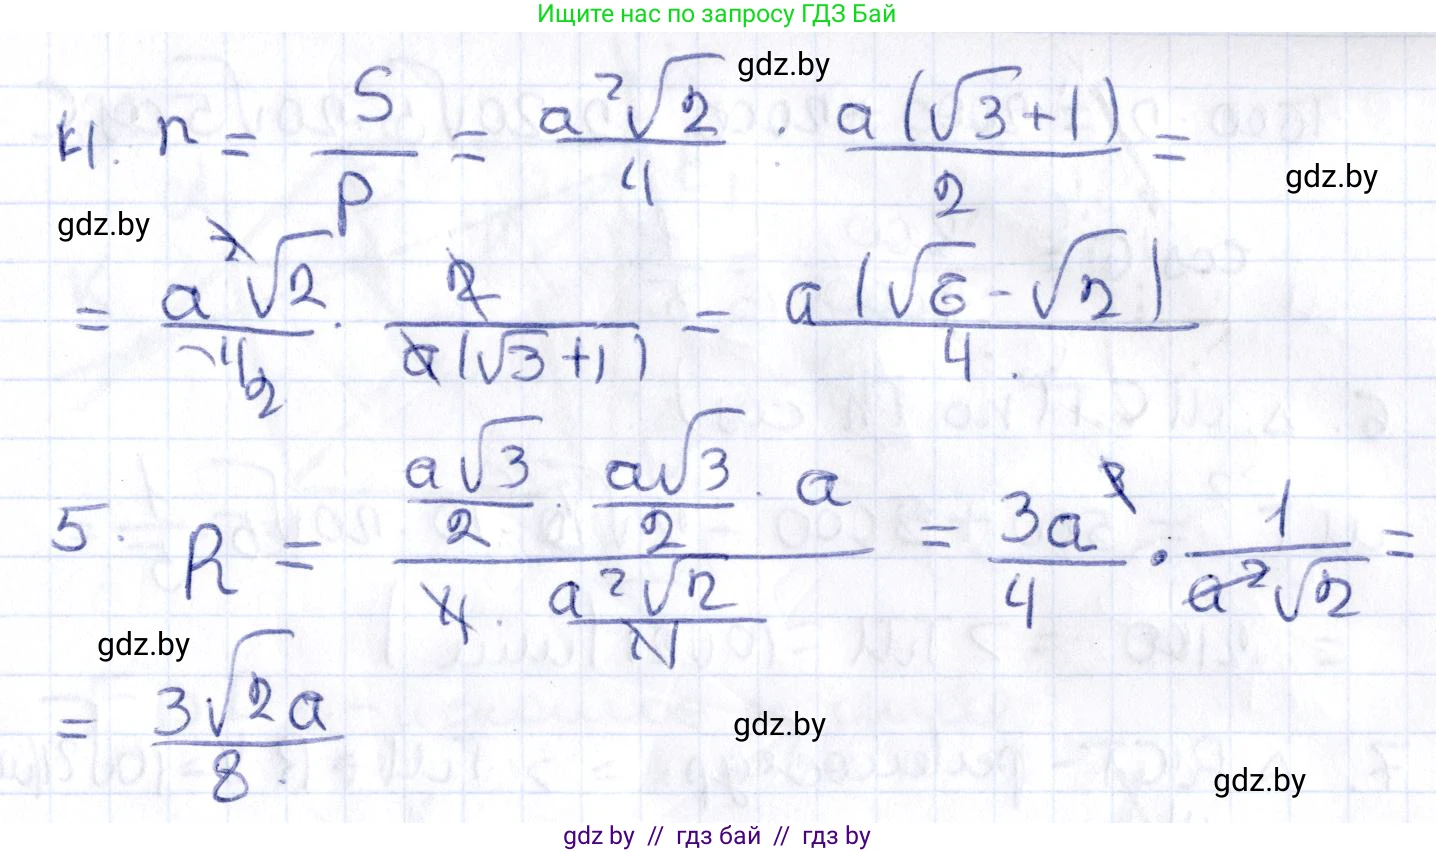 Ищите нас по запросу ГДЗ Бай
gdz.by
4. r = S/p = a²√2/4 · a(√3+1)/2 =
gdz.by
gdz.by
= a²√2/4 2 · 2/a(√3+1) = a(√6-√2)/4.
5. R = (a√3/2 · a√3/2 · a)/(4 · a²√2/4) = 3a³/4 · 1/a²√2 =
gdz.by
= 3√2a/8.
gdz.by
gdz.by
gdz.by // гдз бай // гдз by